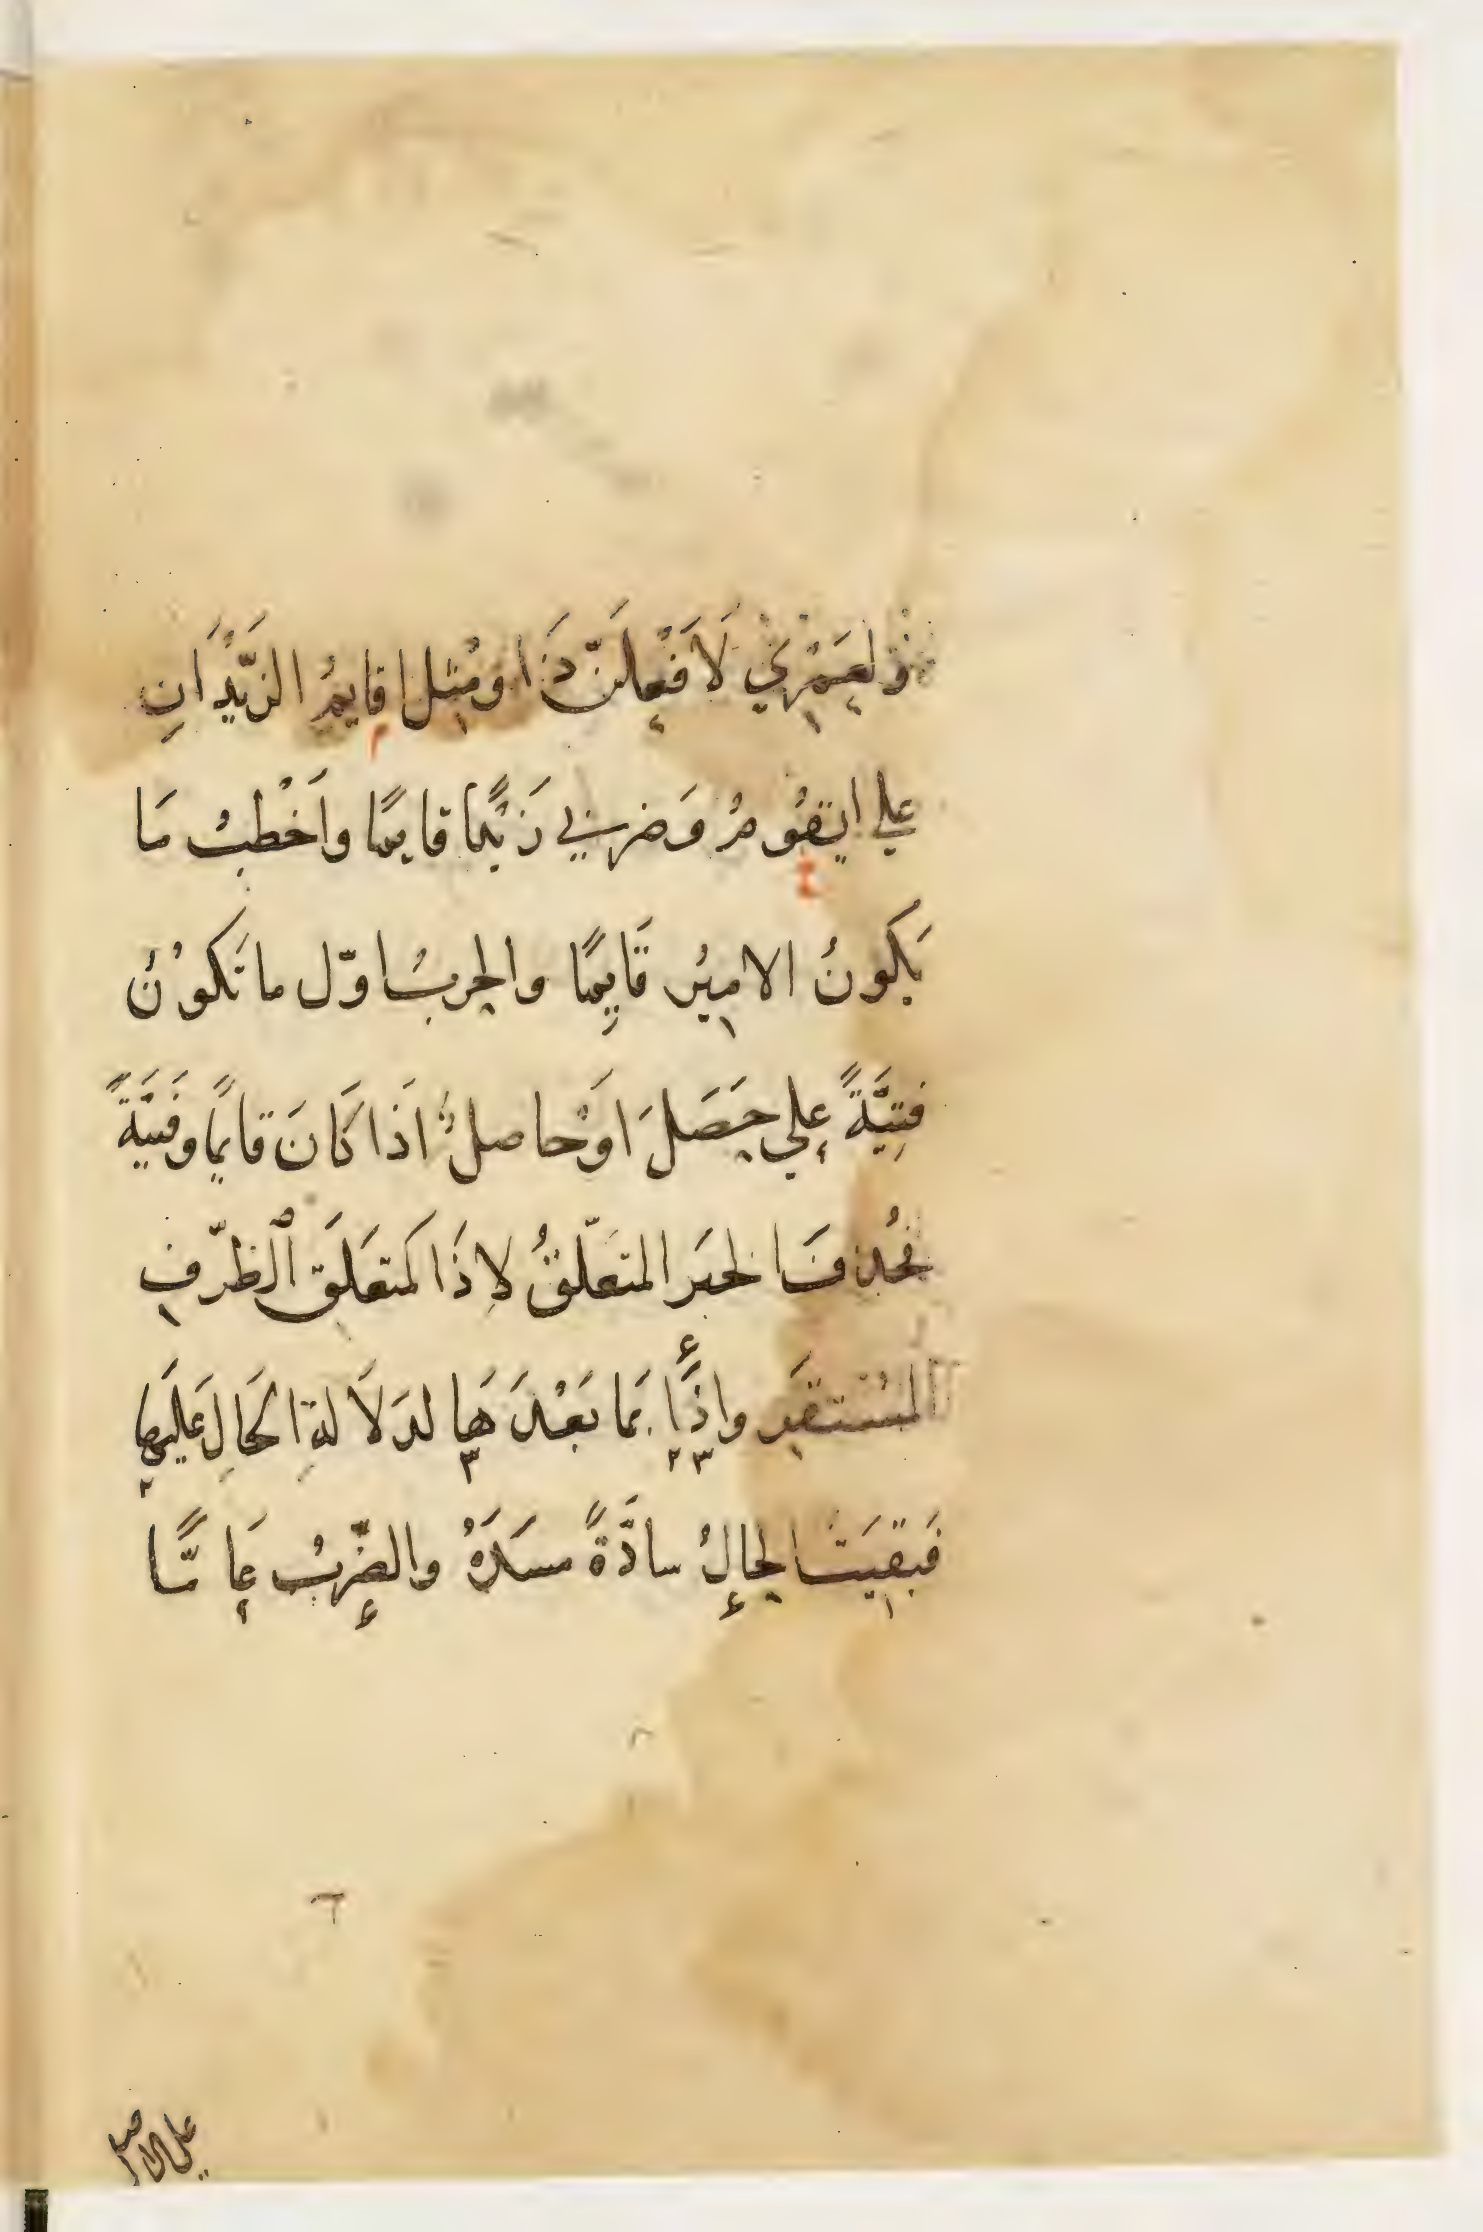 وَلَعَمْرِي لَاَفْعَلَنَّ كَذَا وَمْثِل اقايمُ الزَّيْدَانِ
علي ايقُومُ وَضربي زَيْدًا قايمًا واَخْطَبُ مَا
يَكونُ الاميُر قَايِمًا والحربُ اوّل ما تَكوْنُ
فَتِيَّةً علي حَصَلَ اوْحاصلٌ اذَا كَانَ قايمًا وفَتِيَّةً
فحُذفَ الخبَر المتعَلّقُ لاِذَا كَمتعَلَق الْظرّفِ
المُسْتقَر واذَا بمَا بَعْدَهَا لدَلَالةِ الحَالِ عَلَيها
فَبَقيَت الحالُ سادَّةً مسَدَهُ والضّربُ عَامًّا
على الاصل